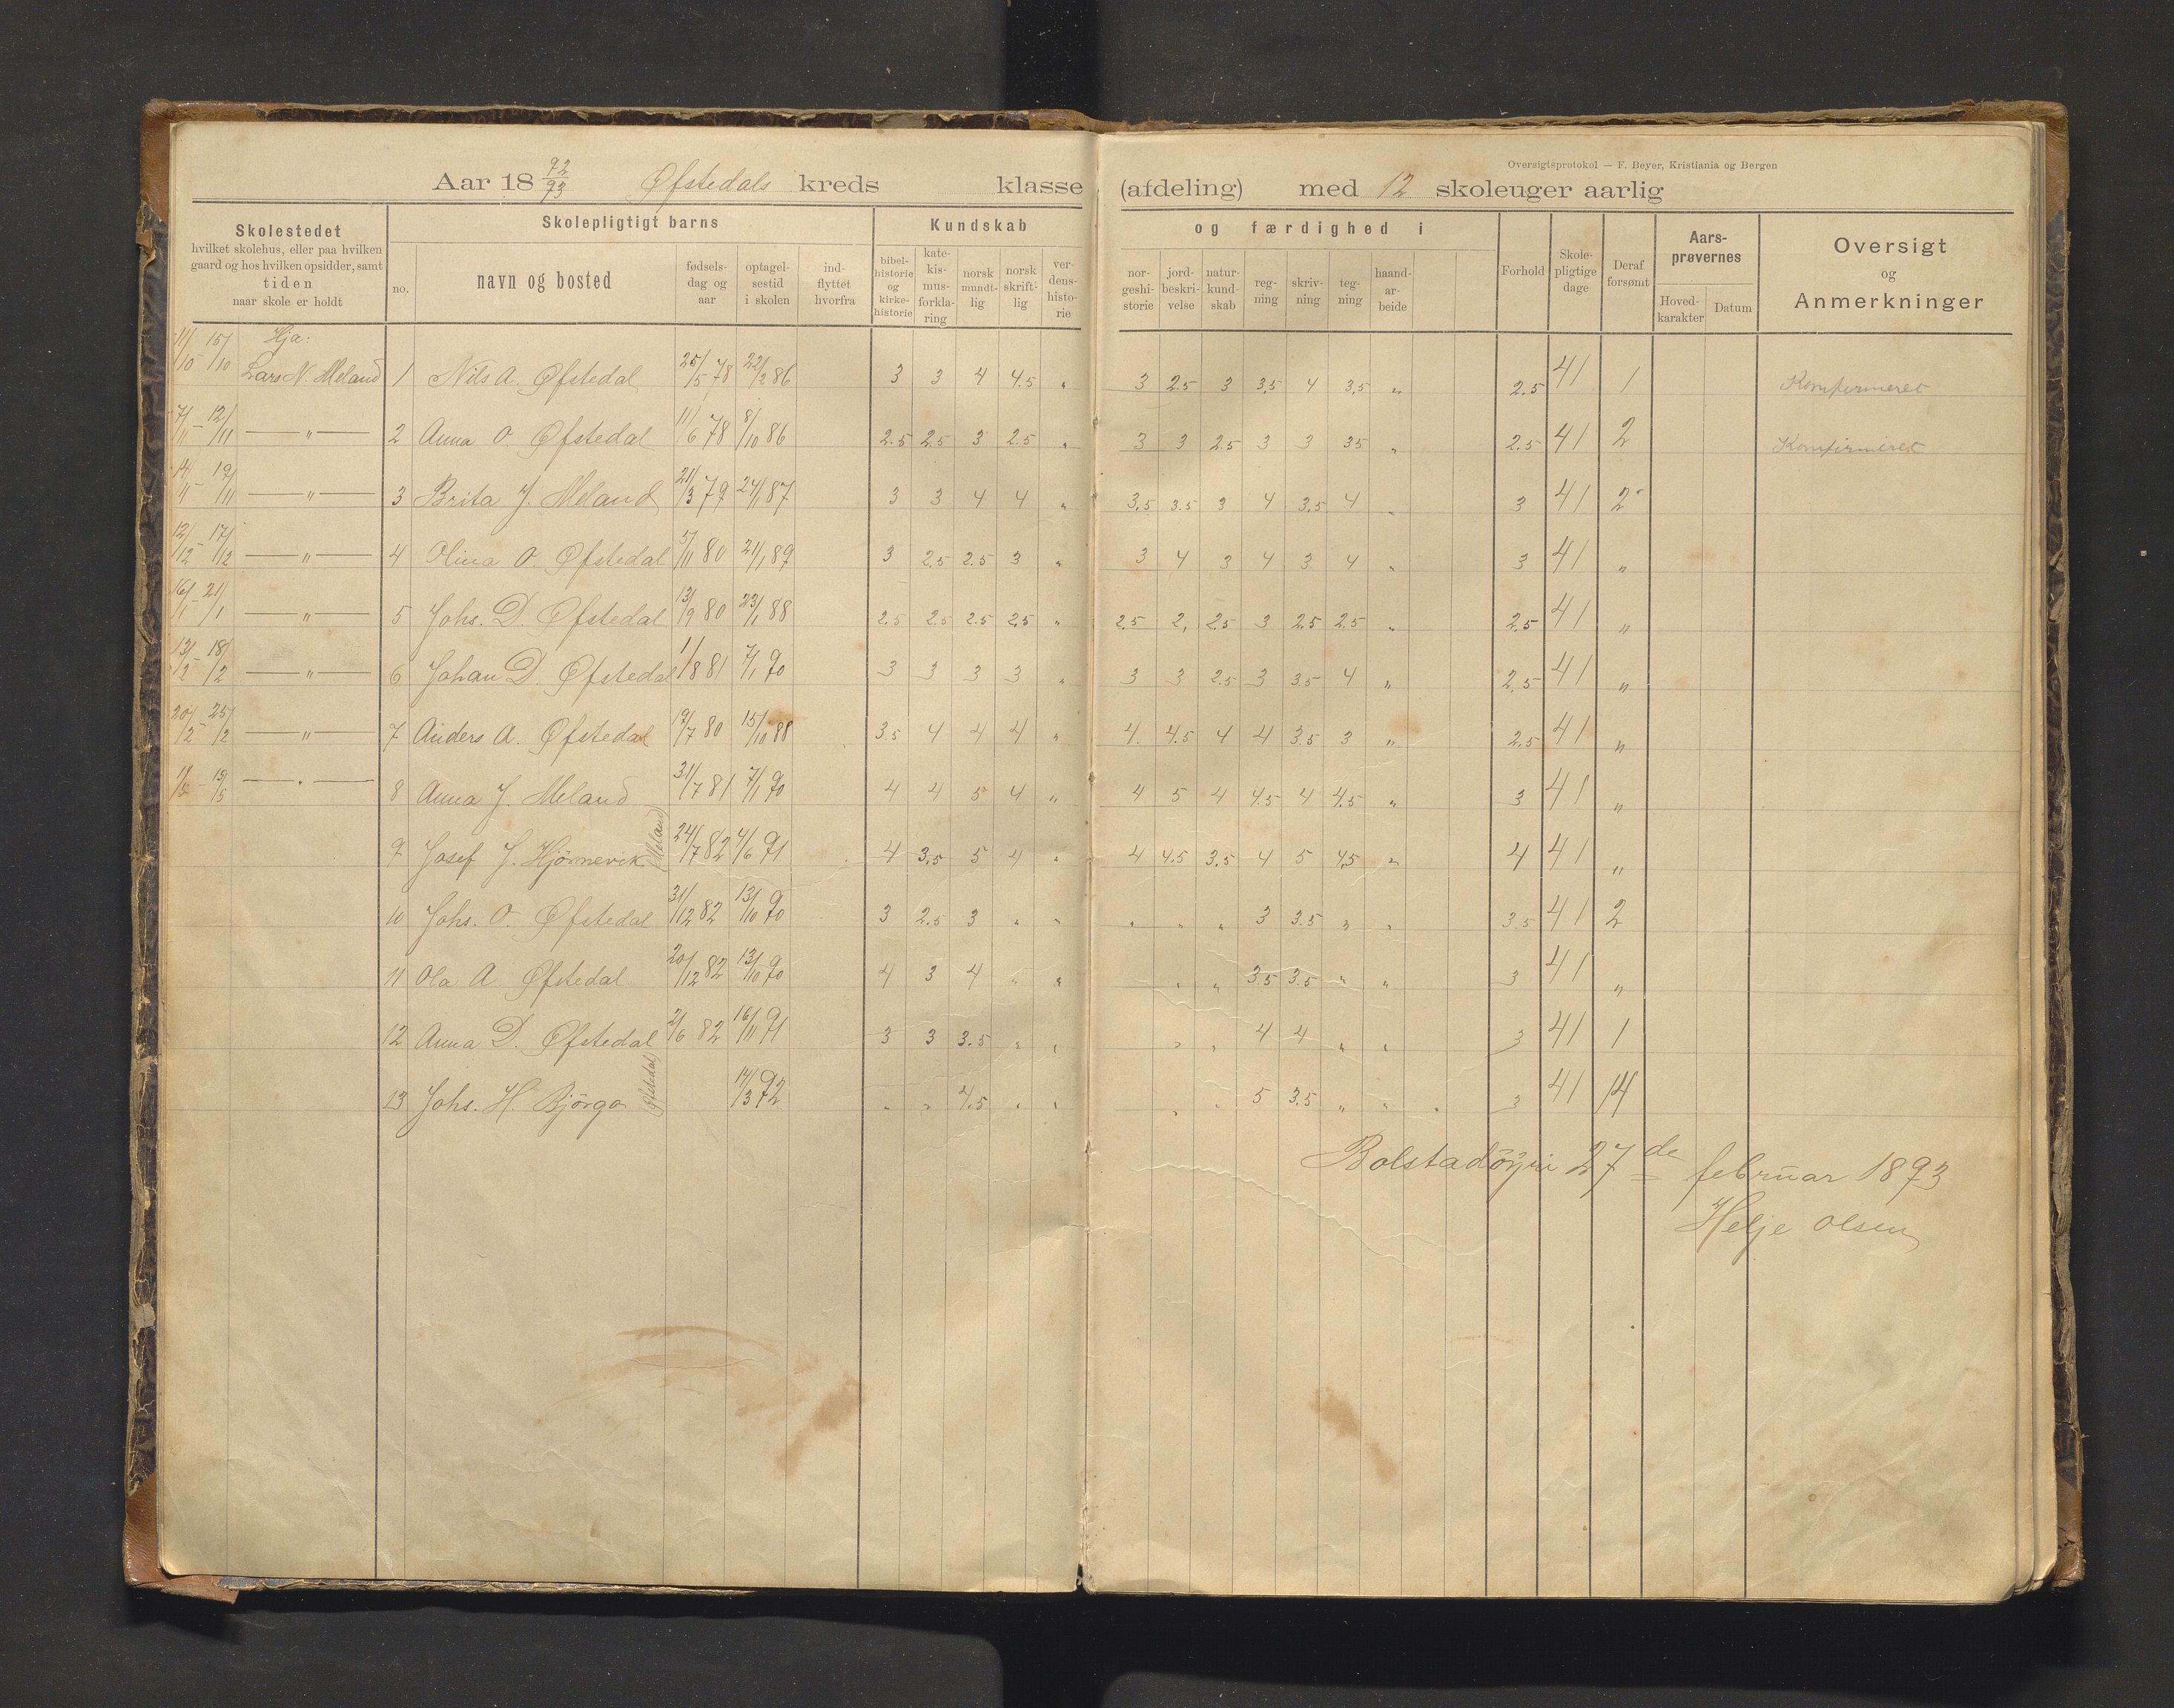 Oversigtsprotokol — F. Beyer, Kristiania og Bergen
Aar 18 92/93 Øfstedals kreds klasse (afdeling) med 12 skoleuger aarlig
Skolestedet
hvilket skolehus, eller paa hvilken
gaard og hos hvilken opsidder, samt
tiden
naar skole er holdt
Skolepligtigt barns
no.
navn og bosted
fødsels-
dag og
aar
optagel-
sestid
i skolen
ind-
flyttet
hvorfra
Kundskab og færdighed i
bibel-
historie
og
kirke-
historie
kate-
kis-
mus-
forkla-
ring
norsk
mundt-
lig
norsk
skrift-
lig
ver-
dens-
histo-
rie
nor-
geshi-
storie
jord-
beskri-
velse
natur-
kund-
skab
reg-
ning
skriv-
ning
teg-
ning
haand-
ar-
beide
Forhold
Skole-
pligtige
dage
Deraf
forsømt
Aars-
prøvernes
Hoved-
karakter
Datum
Oversigt
og
Anmerkninger
Hja:
11/10 - 15/10 Lars N. Meland 1 Nils A. Øfstedal 25/5 78 22/2 86 3 3 4 4.5 „ 3 2.5 3 3.5 4 3.5 „ 2.5 41 1 Konfirmeret
7/11 - 12/11 — „ — 2 Anna O. Øfstedal 11/6 78 8/10 86 2.5 2.5 3 2.5 „ 3 3 2.5 3 3 35 „ 2.5 41 2 Konfirmeret
14/11 - 19/11 — „ — 3 Brita J. Meland 21/3 79 24/1 87 3 3 4 4 „ 3,5 3.5 3 4 3,5 4 „ 3 41 2
12/12 - 17/12 — „ — 4 Olina O. Øfstedal 5/11 80 21/1 89 3 2.5 2.5 3 „ 3 4 3 4 3 4 „ 3 41 „
16/1 - 21/1 — „ — 5 Johs. D. Øfstedal 13/9 80 23/1 88 2.5 2.5 2.5 2,5 „ 2.5 2, 2.5 3 2.5 2.5 „ 2,5 41 „
13/2 - 18/2 — „ — 6 Johan D. Øfstedal 1/8 81 7/1 90 3 3 3 3 „ 3 3 2.5 3 3.5 4 „ 2,5 41 „
20/2 - 25/2 — „ — 7 Anders A. Øfstedal 17/7 80 15/10 88 3.5 4 4 4 „ 4. 4.5 4 4 3.5 3 „ 2.5 41 „
— „ — 8 Anna J. Meland 31/7 81 7/1 90 4 4 5 4 „ 4 5 4 4.5 4 4.5 „ 3 41 „
9 Josef J. Hjörnevik Meland 24/7 82 4/6 91 4 3,5 5 4 „ 4 4.5 3.5 4 5 4,5 „ 4 41 „
10 Johs. O. Øfstedal 31/12 82 13/10 90 3 2.5 3 „ „ „ „ „ 3 3.5 „ „ 3.5 41 2
11 Ola A Øfstedal 20/12 82 13/10 90 4 3 4 „ „ „ „ 3.5 3.5 „ „ 3 41 „
12 Anna D. Øfstedal 2/6 82 16/11 91 3 3 3.5 „ „ „ „ 4 4 „ „ 3 41 1
13 Johs. H. Bjørgo Øfstedal 14/3 92 „ „ 4.5 „ „ „ „ 5 3.5 „ „ „ 3 41 14
Bolstadöyri 27de februar 1893
Helje Olsen